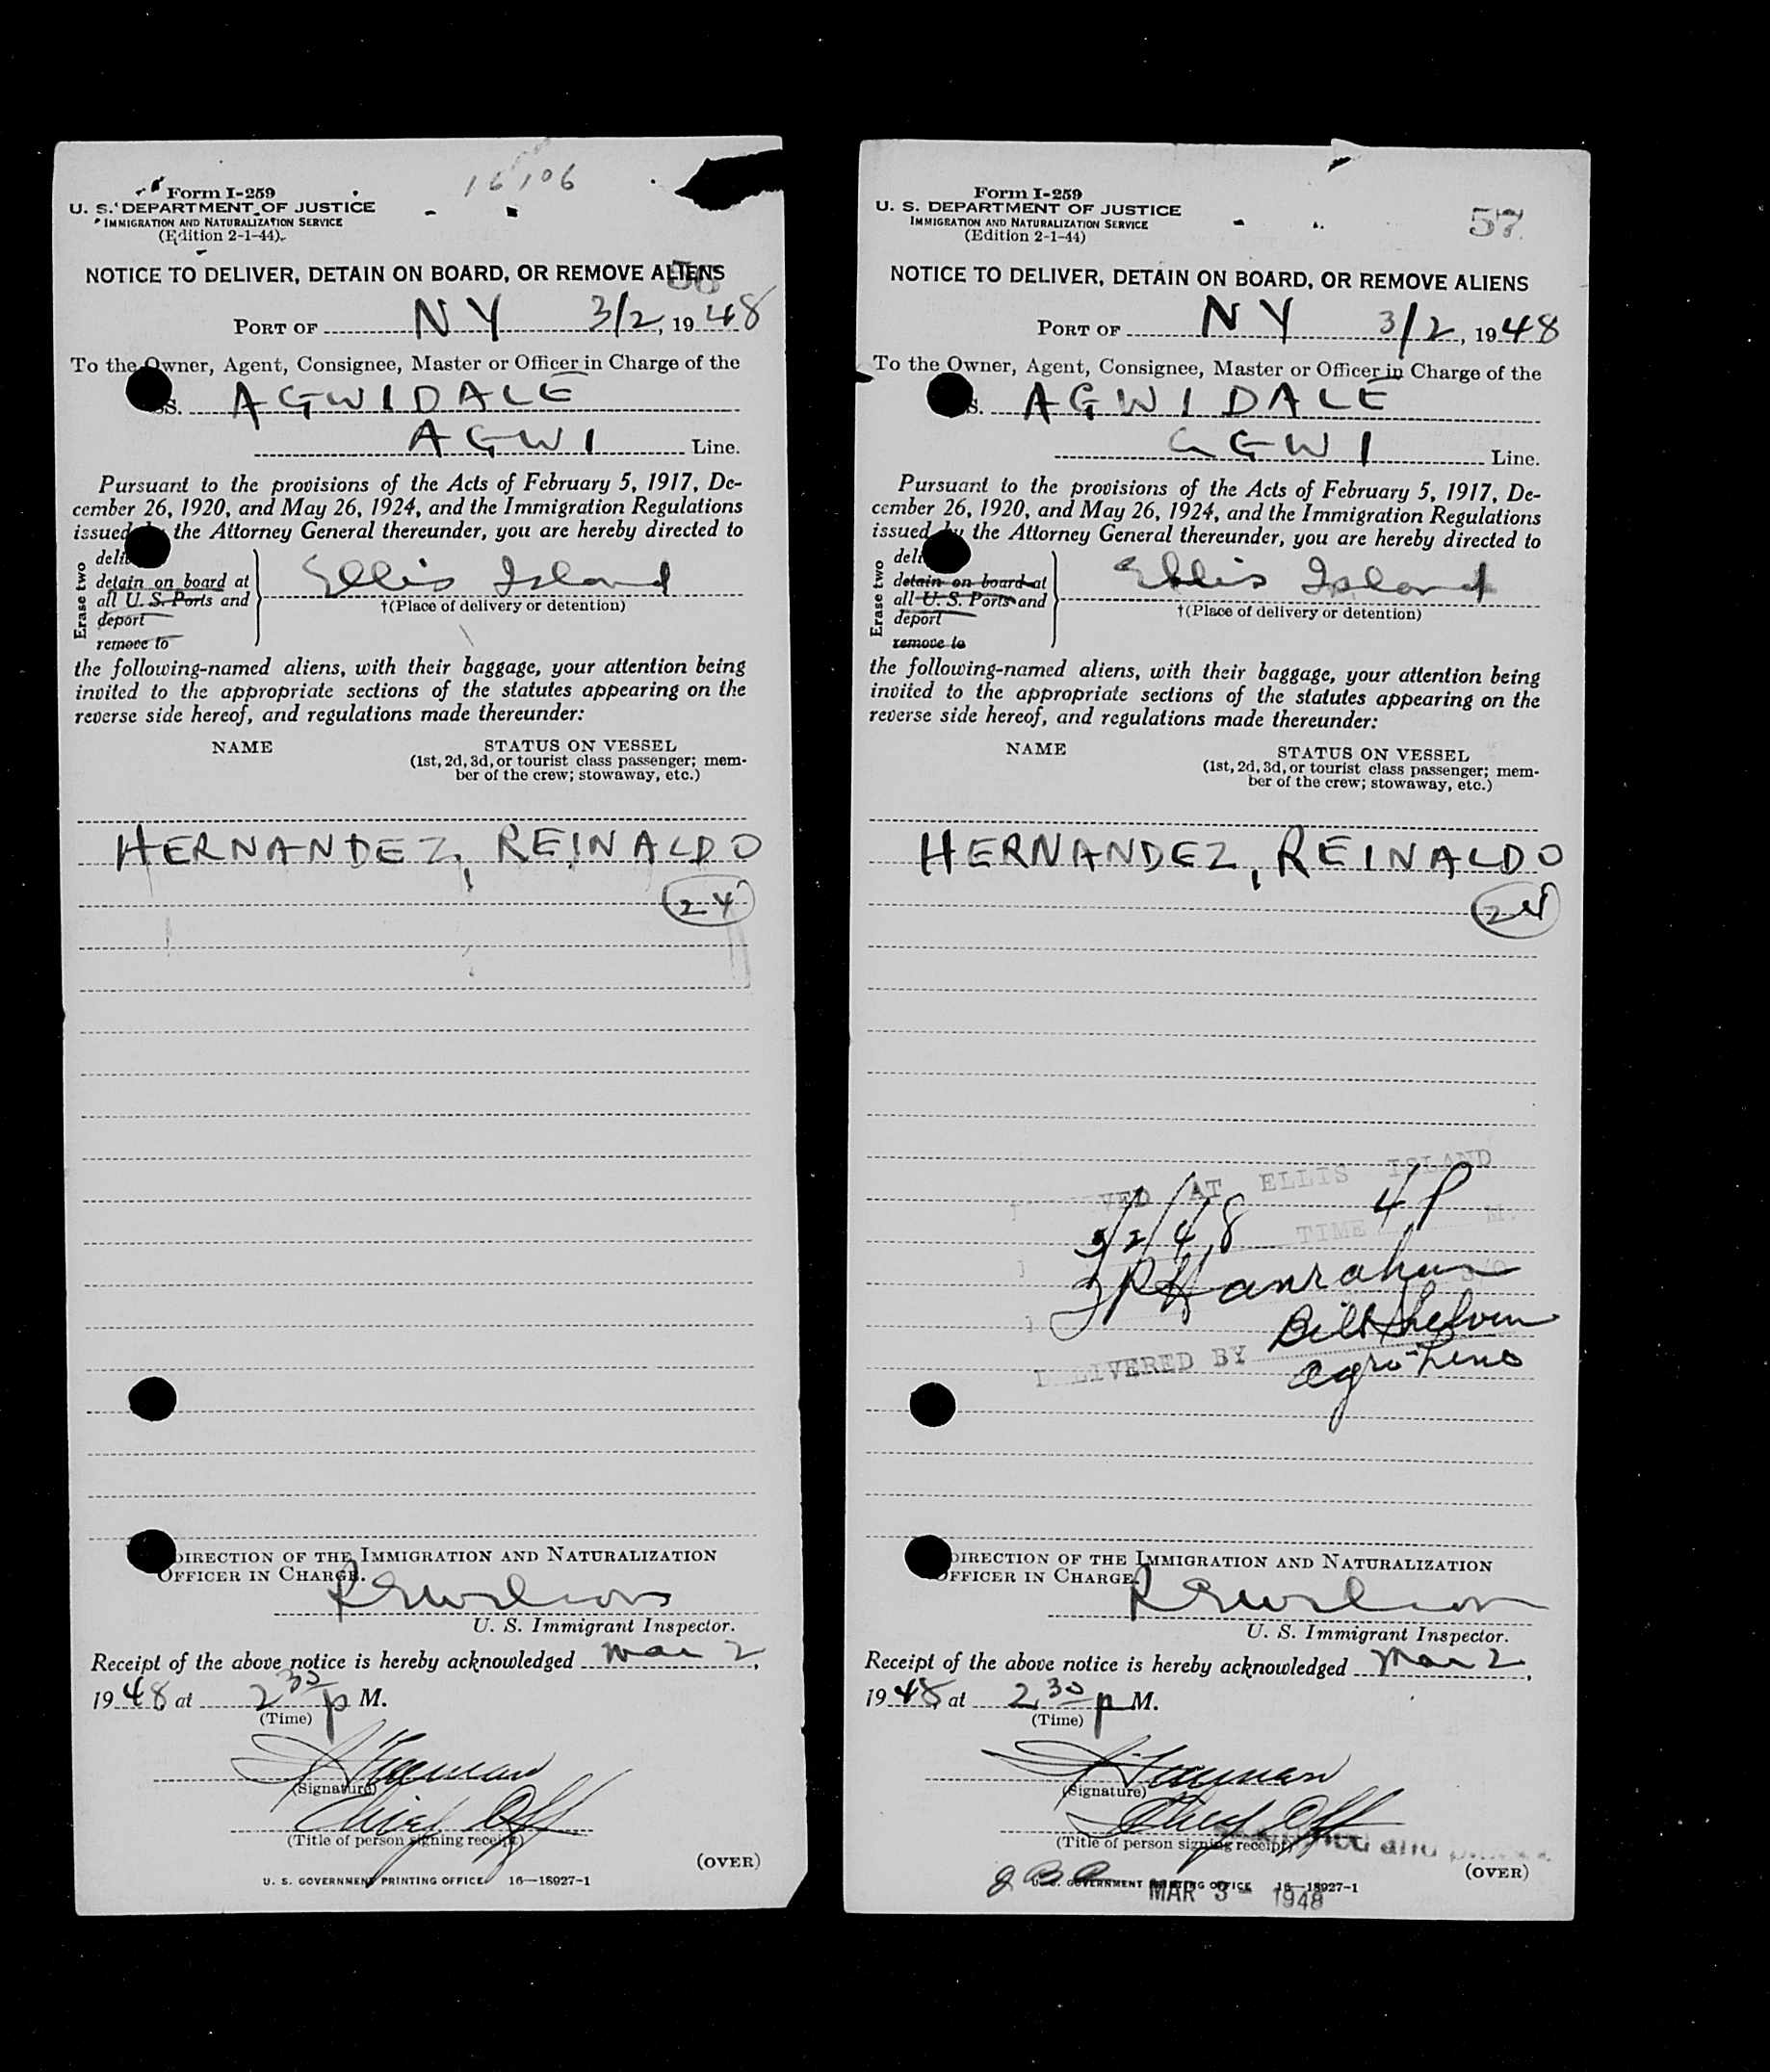 16106
Form I-259
U. S. DEPARTMENT OF JUSTICE
IMMIGRATION AND NATURALIZATION SERVICE
(Edition 2-1-44)
56
NOTICE TO DELIVER, DETAIN ON BOARD, OR REMOVE ALIENS
PORT OF NY 3/2, 1948
To the Owner, Agent, Consignee, Master or Officer in Charge of the
SS. AGWIDALE
AGWI Line.
Pursuant to the provisions of the Acts of February 5, 1917, De-
cember 26, 1920, and May 26, 1924, and the Immigration Regulations
issued by the Attorney General thereunder, you are hereby directed to
Erase two
deli
detain on board at
all U. S. Ports and
deport
remove to
Ellis Island
†(Place of delivery or detention)
the following-named aliens, with their baggage, your attention being
invited to the appropriate sections of the statutes appearing on the
reverse side hereof, and regulations made thereunder:
NAME
STATUS ON VESSEL
(1st, 2d, 3d, or tourist class passenger; mem-
ber of the crew; stowaway, etc.)
HERNANDEZ, REINALDO
24
DIRECTION OF THE IMMIGRATION AND NATURALIZATION
OFFICER IN CHARGE.
R E Wilson
U. S. Immigrant Inspector.
Receipt of the above notice is hereby acknowledged Mar 2,
1948 at 2 30 p M.
(Time)
(Signature)
Chief Off
(Title of person signing receipt)
(OVER)
U. S. GOVERNMENT PRINTING OFFICE 16—18927-1
Form I-259
U. S. DEPARTMENT OF JUSTICE
IMMIGRATION AND NATURALIZATION SERVICE
(Edition 2-1-44)
57
NOTICE TO DELIVER, DETAIN ON BOARD, OR REMOVE ALIENS
PORT OF NY 3/2, 1948
To the Owner, Agent, Consignee, Master or Officer in Charge of the
SS. AGWIDALE
AGWI Line.
Pursuant to the provisions of the Acts of February 5, 1917, De-
cember 26, 1920, and May 26, 1924, and the Immigration Regulations
issued by the Attorney General thereunder, you are hereby directed to
Erase two
deli
detain on board at
all U. S. Ports and
deport
remove to
Ellis Island
†(Place of delivery or detention)
the following-named aliens, with their baggage, your attention being
invited to the appropriate sections of the statutes appearing on the
reverse side hereof, and regulations made thereunder:
NAME
STATUS ON VESSEL
(1st, 2d, 3d, or tourist class passenger; mem-
ber of the crew; stowaway, etc.)
HERNANDEZ, REINALDO
24
VED AT ELLIS ISLAND
3/2/48 TIME 4P M.
J P Hanrahan
Bill
DELIVERED BY
DIRECTION OF THE IMMIGRATION AND NATURALIZATION
OFFICER IN CHARGE.
R E Wilson
U. S. Immigrant Inspector.
Receipt of the above notice is hereby acknowledged Mar 2,
1948, at 2 30 p M.
(Time)
(Signature)
Chief Off
(Title of person signing receipt)
(OVER)
U. S. GOVERNMENT PRINTING OFFICE 16—18927-1
MAR 3 - 1948